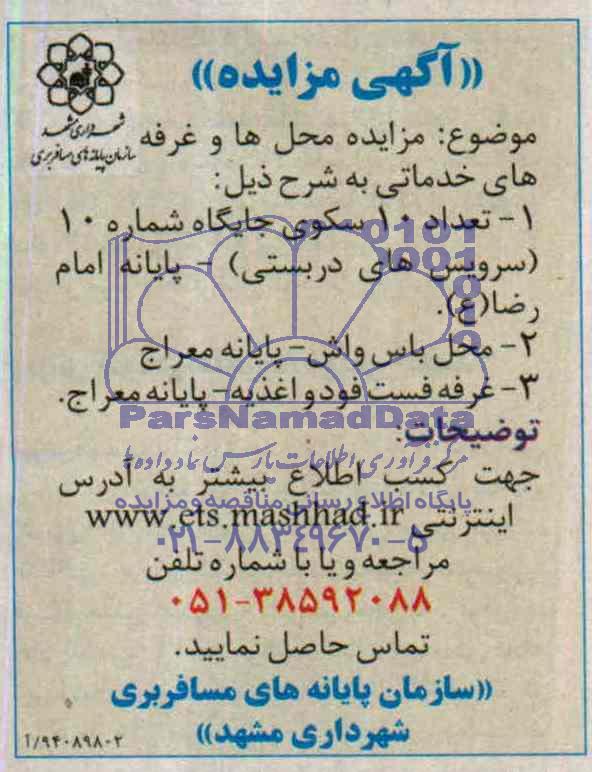 ((آگهی مزایده))
شهرداری مشهد
سازمان پایانه های مسافربری
موضوع: مزایده محل ها و غرفه
های خدماتی به شرح ذیل:
۱- تعداد ۱۰ سکوی جایگاه شماره ۱۰
(سرویس های دربستی) - پایانه امام
رضا(ع).
۲- محل باس واش- پایانه معراج
۳- غرفه فست فود و اغذیه- پایانه معراج.
ParsNamadData
توضیحات:
مرکز فرآوری اطلاعات پارس نماد داده ها
جهت کسب اطلاع بیشتر به آدرس
پایگاه اطلاع رسانی مناقصه و مزایده
اینترنتی www.ets.mashhad.ir
۰۲۱-۸۸۳۴۹۶۷۰-۵
مراجعه و یا با شماره تلفن
۰۵۱-۳۸۵۹۲۰۸۸
تماس حاصل نمایید.
((سازمان پایانه های مسافربری
شهرداری مشهد))
۹۴۰۸۹۸۰۲/آ